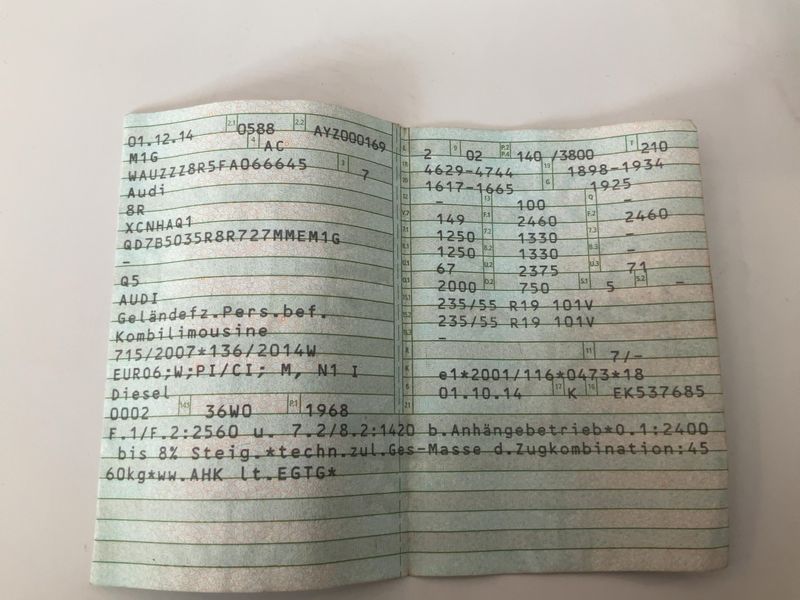 01.12.14 2.1 0588 2.2 AYZ000169
M1G 4 AC
WAUZZZ8R5FA066645 3 7
Audi
8R
XCNHAQ1
QD7B5035R8R727MMEM1G
-
Q5
AUDI
Geländefz.Pers.bef.
Kombilimousine
715/2007*136/2014W
EURO6;W;PI/CI; M, N1 I
Diesel
0002 14.1 36W0 P.1 1968
2 9 02 P.2 P.4 140 /3800 T 210
18 4629-4744 19 1898-1934
20 1617-1665 G 1925
12 - 13 100 Q -
V.7 149 F.1 2460 F.2 2460
7.1 1250 7.2 1330 7.3 -
8.1 1250 8.2 1330 8.3 -
U.1 67 U.2 2375 U.3 71
O.1 2000 O.2 750 S.1 5 S.2 -
15.1 235/55 R19 101V
15.2 235/55 R19 101V
15.3 -
R 11 7/-
K e1*2001/116*0473*18
6 01.10.14 17 K 16 EK537685
21
F.1/F.2:2560 u. 7.2/8.2:1420 b.Anhängebetrieb*O.1:2400
bis 8% Steig.*techn.zul.Ges-Masse d.Zugkombination:45
60kg*ww.AHK lt.EGTG*